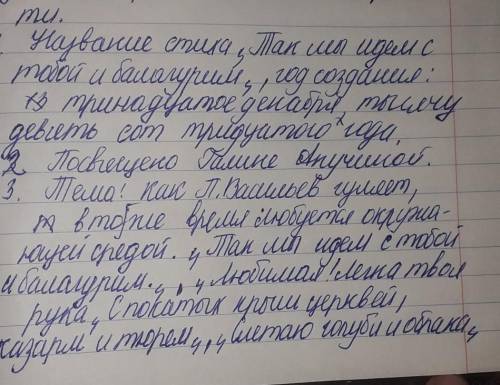 ти.
Название стиха „Так мы идем с
тобой и балагурим„, год создания:
тринадцатое декабря тысячу
девять сот тридцатого года.
2 Посвещено Галине Анучиной.
3. Тема! Как П. Васильев гуляет,
в тоже время любуется окружа-
ющей средой. „Так мы идем с тобой
и балагурим.„, „Любимая! Легка твоя
рука„ С покатых крыш церквей,
казарм и тюрем„, „Слетаю голуби и облака„